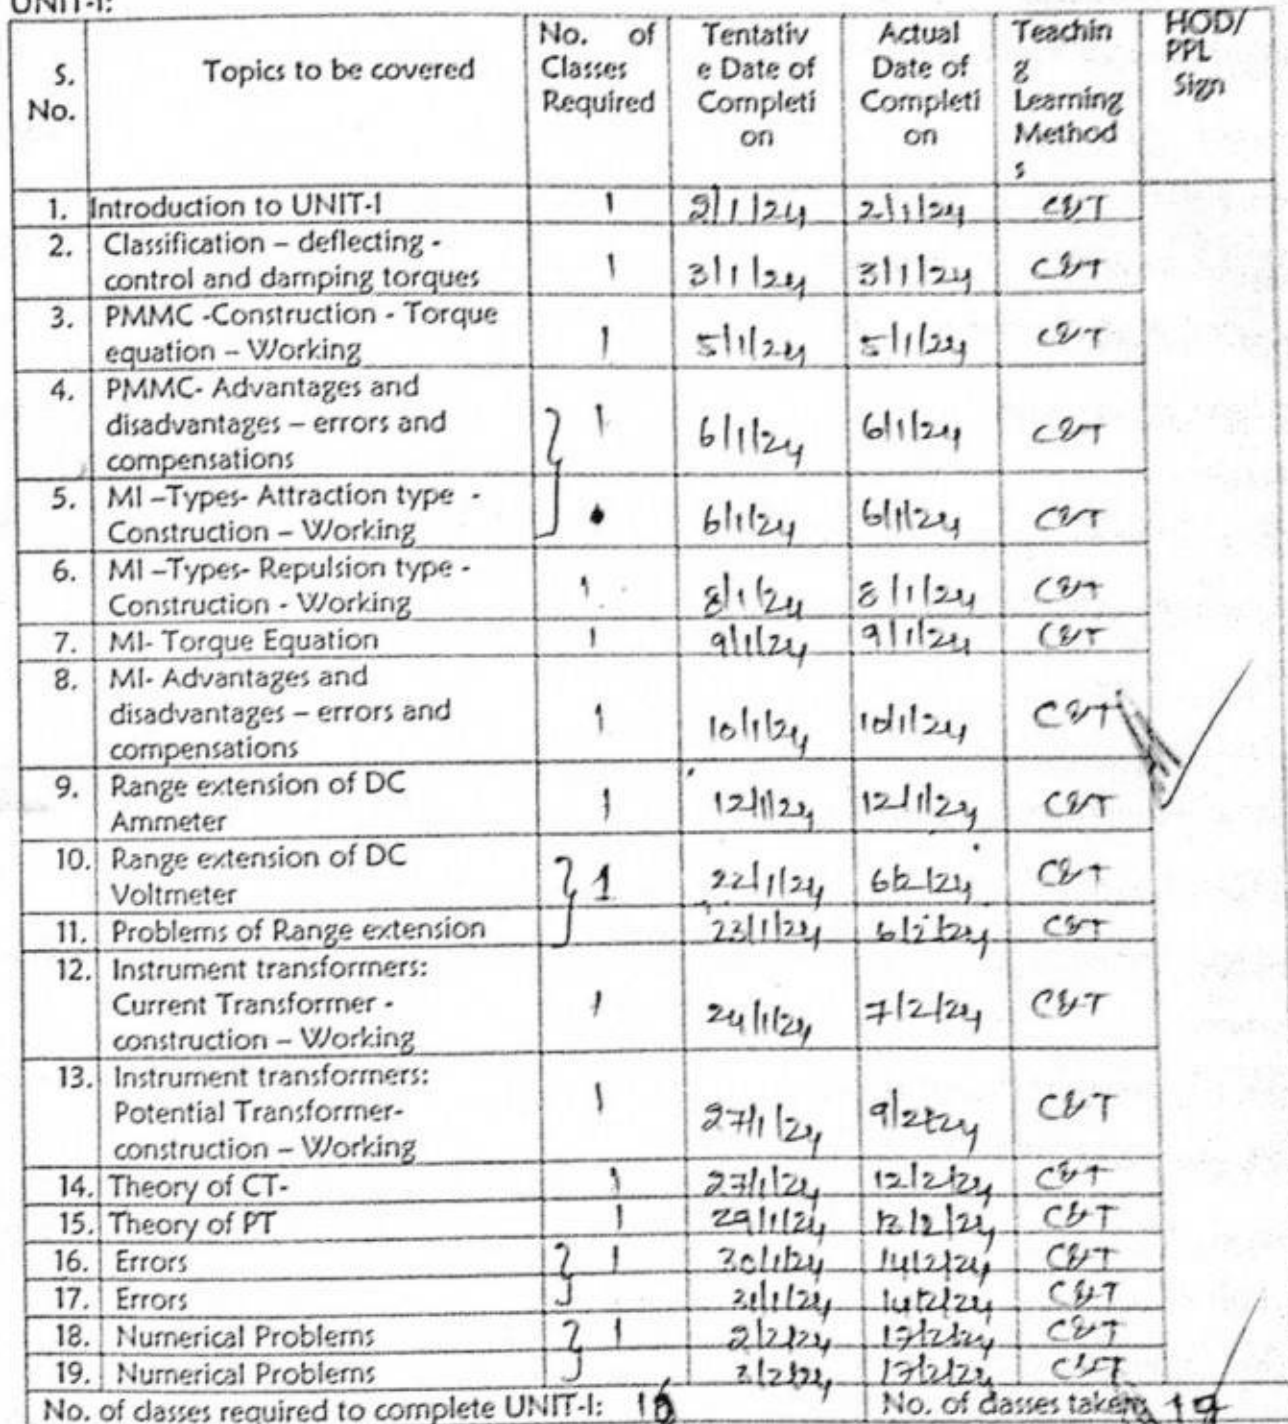 UNIT-I:
S. No. Topics to be covered No. of Classes Required Tentative Date of Completion Actual Date of Completion Teaching Learning Methods HOD/ PPL Sign
1. Introduction to UNIT-I 1 2/1/24 2/1/24 C&T
2. Classification – deflecting -
control and damping torques 1 3/1/24 3/1/24 C&T
3. PMMC -Construction - Torque
equation – Working 1 5/1/24 5/1/24 C&T
4. PMMC- Advantages and
disadvantages – errors and
compensations 1 6/1/24 6/1/24 C&T
5. MI –Types- Attraction type -
Construction – Working 6/1/24 6/1/24 C&T
6. MI –Types- Repulsion type -
Construction - Working 1 8/1/24 8/1/24 C&T
7. MI- Torque Equation 1 9/1/24 9/1/24 C&T
8. MI- Advantages and
disadvantages – errors and
compensations 1 10/1/24 10/1/24 C&T
9. Range extension of DC
Ammeter 1 12/1/24 12/1/24 C&T
10. Range extension of DC
Voltmeter 1 22/1/24 6/2/24 C&T
11. Problems of Range extension 23/1/24 6/2/24 C&T
12. Instrument transformers:
Current Transformer -
construction – Working 1 24/1/24 7/2/24 C&T
13. Instrument transformers:
Potential Transformer-
construction – Working 1 27/1/24 9/2/24 C&T
14. Theory of CT- 1 27/1/24 12/2/24 C&T
15. Theory of PT 1 29/1/24 C&T
16. Errors 1 30/1/24 14/2/24 C&T
17. Errors 31/1/24 14/2/24 C&T
18. Numerical Problems 1 2/2/24 17/2/24 C&T
19. Numerical Problems 3/2/24 17/2/24 C&T
No. of classes required to complete UNIT-I: No. of classes taken: